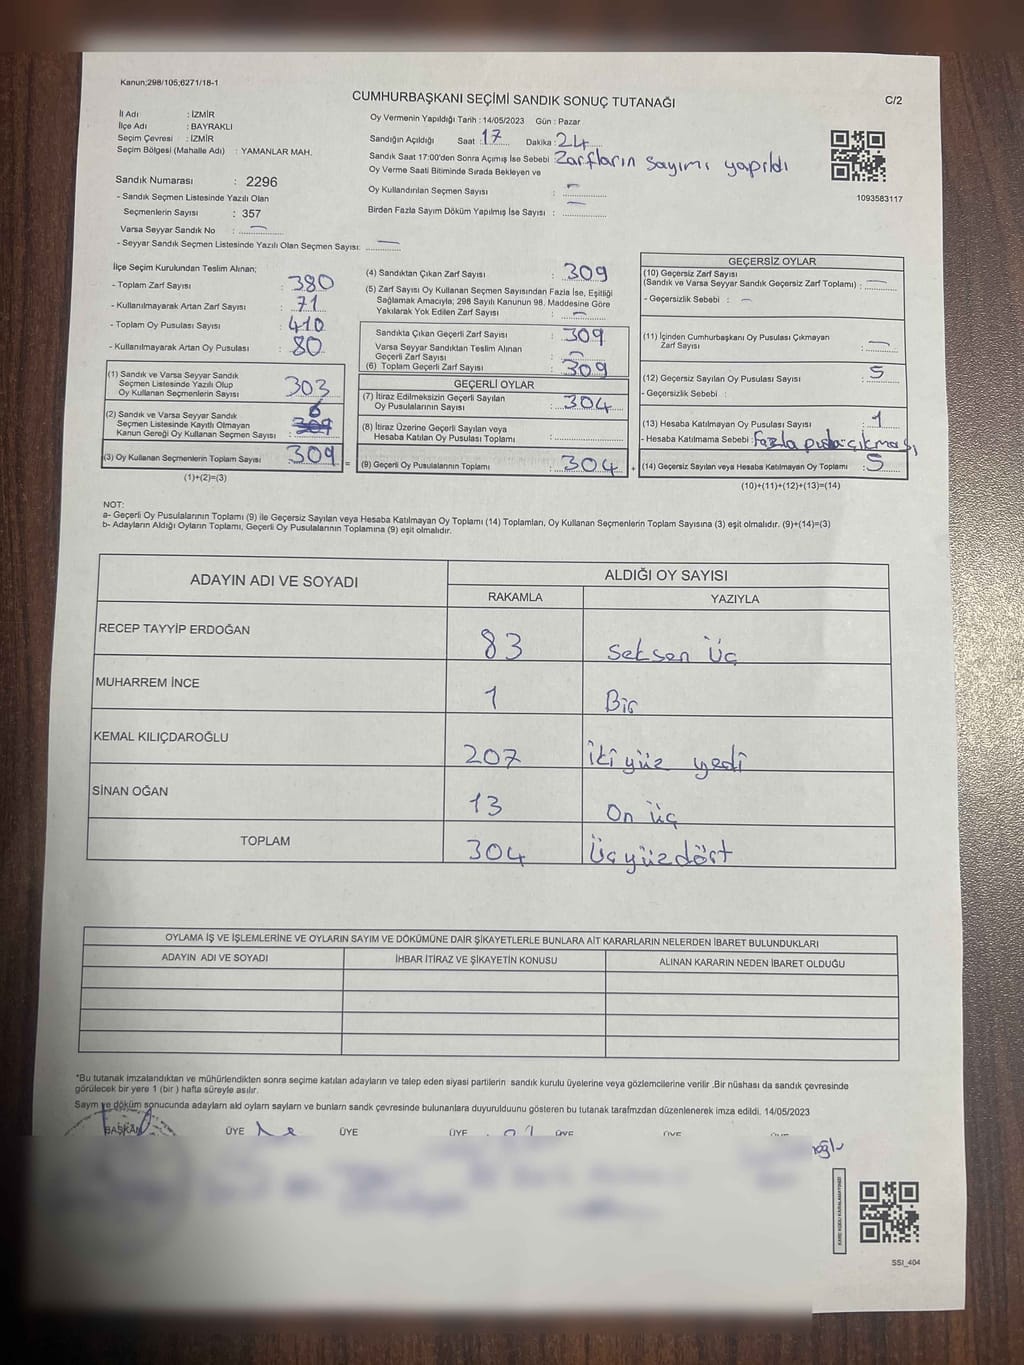 Kanun;298/105;6271/18-1
CUMHURBAŞKANI SEÇİMİ SANDIK SONUÇ TUTANAĞI
C/2
İl Adı : İZMİR
İlçe Adı : BAYRAKLI
Seçim Çevresi : İZMİR
Seçim Bölgesi (Mahalle Adı) : YAMANLAR MAH.
Oy Vermenin Yapıldığı Tarih : 14/05/2023 Gün : Pazar
Sandığın Açıldığı Saat : 17 Dakika : 24
Sandık Saat 17:00'den Sonra Açımış İse Sebebi : Zarfların sayımı yapıldı
Oy Verme Saati Bitiminde Sırada Bekleyen ve
Oy Kullandırılan Seçmen Sayısı : —
Birden Fazla Sayım Döküm Yapılmış İse Sayısı : —
1093583117
Sandık Numarası : 2296
- Sandık Seçmen Listesinde Yazılı Olan
Seçmenlerin Sayısı : 357
Varsa Seyyar Sandık No : —
- Seyyar Sandık Seçmen Listesinde Yazılı Olan Seçmen Sayısı: —
İlçe Seçim Kurulundan Teslim Alınan;
- Toplam Zarf Sayısı : 380
- Kullanılmayarak Artan Zarf Sayısı : 71
- Toplam Oy Pusulası Sayısı : 410
- Kullanılmayarak Artan Oy Pusulası : 80
(1) Sandık ve Varsa Seyyar Sandık
Seçmen Listesinde Yazılı Olup
Oy Kullanan Seçmenlerin Sayısı : 303
(2) Sandık ve Varsa Seyyar Sandık
Seçmen Listesinde Kayıtlı Olmayan
Kanun Gereği Oy Kullanan Seçmen Sayısı : 6
(3) Oy Kullanan Seçmenlerin Toplam Sayısı : 309
(1)+(2)=(3)
(4) Sandıktan Çıkan Zarf Sayısı : 309
(5) Zarf Sayısı Oy Kullanan Seçmen Sayısından Fazla İse, Eşitliği
Sağlamak Amacıyla; 298 Sayılı Kanunun 98. Maddesine Göre
Yakılarak Yok Edilen Zarf Sayısı : —
Sandıkta Çıkan Geçerli Zarf Sayısı : 309
Varsa Seyyar Sandıktan Teslim Alınan
Geçerli Zarf Sayısı : —
(6) Toplam Geçerli Zarf Sayısı : 309
GEÇERLİ OYLAR
(7) İtiraz Edilmeksizin Geçerli Sayılan
Oy Pusulalarının Sayısı : 304
(8) İtiraz Üzerine Geçerli Sayılan veya
Hesaba Katılan Oy Pusulası Toplamı :
= (9) Geçerli Oy Pusulalarının Toplamı : 304 +
GEÇERSİZ OYLAR
(10) Geçersiz Zarf Sayısı
(Sandık ve Varsa Seyyar Sandık Geçersiz Zarf Toplamı) : —
- Geçersizlik Sebebi : —
(11) İçinden Cumhurbaşkanı Oy Pusulası Çıkmayan
Zarf Sayısı : —
(12) Geçersiz Sayılan Oy Pusulası Sayısı : 5
- Geçersizlik Sebebi :
(13) Hesaba Katılmayan Oy Pusulası Sayısı : 1
- Hesaba Katılmama Sebebi : Fazla pusula çıkması
(14) Geçersiz Sayılan veya Hesaba Katılmayan Oy Toplamı : 5
(10)+(11)+(12)+(13)=(14)
NOT:
a- Geçerli Oy Pusulalarının Toplamı (9) ile Geçersiz Sayılan veya Hesaba Katılmayan Oy Toplamı (14) Toplamları, Oy Kullanan Seçmenlerin Toplam Sayısına (3) eşit olmalıdır. (9)+(14)=(3)
b- Adayların Aldığı Oyların Toplamı, Geçerli Oy Pusulalarının Toplamına (9) eşit olmalıdır.
ADAYIN ADI VE SOYADI ALDIĞI OY SAYISI
RAKAMLA YAZIYLA
RECEP TAYYİP ERDOĞAN 83 seksen üç
MUHARREM İNCE 1 Bir
KEMAL KILIÇDAROĞLU 207 iki yüz yedi
SİNAN OĞAN 13 On üç
TOPLAM 304 Üçyüzdört
OYLAMA İŞ VE İŞLEMLERİNE VE OYLARIN SAYIM VE DÖKÜMÜNE DAİR ŞİKAYETLERLE BUNLARA AİT KARARLARIN NELERDEN İBARET BULUNDUKLARI
ADAYIN ADI VE SOYADI İHBAR İTİRAZ VE ŞİKAYETİN KONUSU ALINAN KARARIN NEDEN İBARET OLDUĞU
*Bu tutanak imzalandıktan ve mühürlendikten sonra seçime katılan adayların ve talep eden siyasi partilerin sandık kurulu üyelerine veya gözlemcilerine verilir .Bir nüshası da sandık çevresinde
görülecek bir yere 1 (bir ) hafta süreyle asılır.
Sayım ve döküm sonucunda adayların ald oyların sayların ve bunların sandk çevresinde bulunanlara duyurulduunu gösteren bu tutanak tarafmzdan düzenlenerek imza edildi. 14/05/2023
BAŞKAN ÜYE ÜYE ÜYE ÜYE
SSI_404